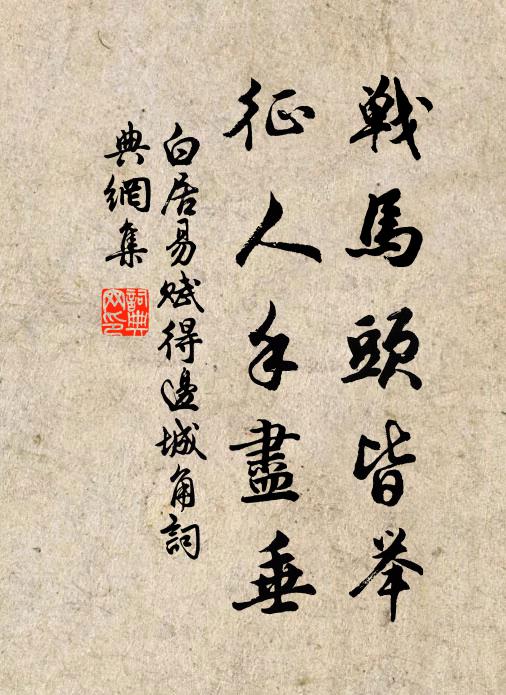 戦馬頭皆举
征人手盡垂
白居易賦得邊城角詞
典網集
詞典網印